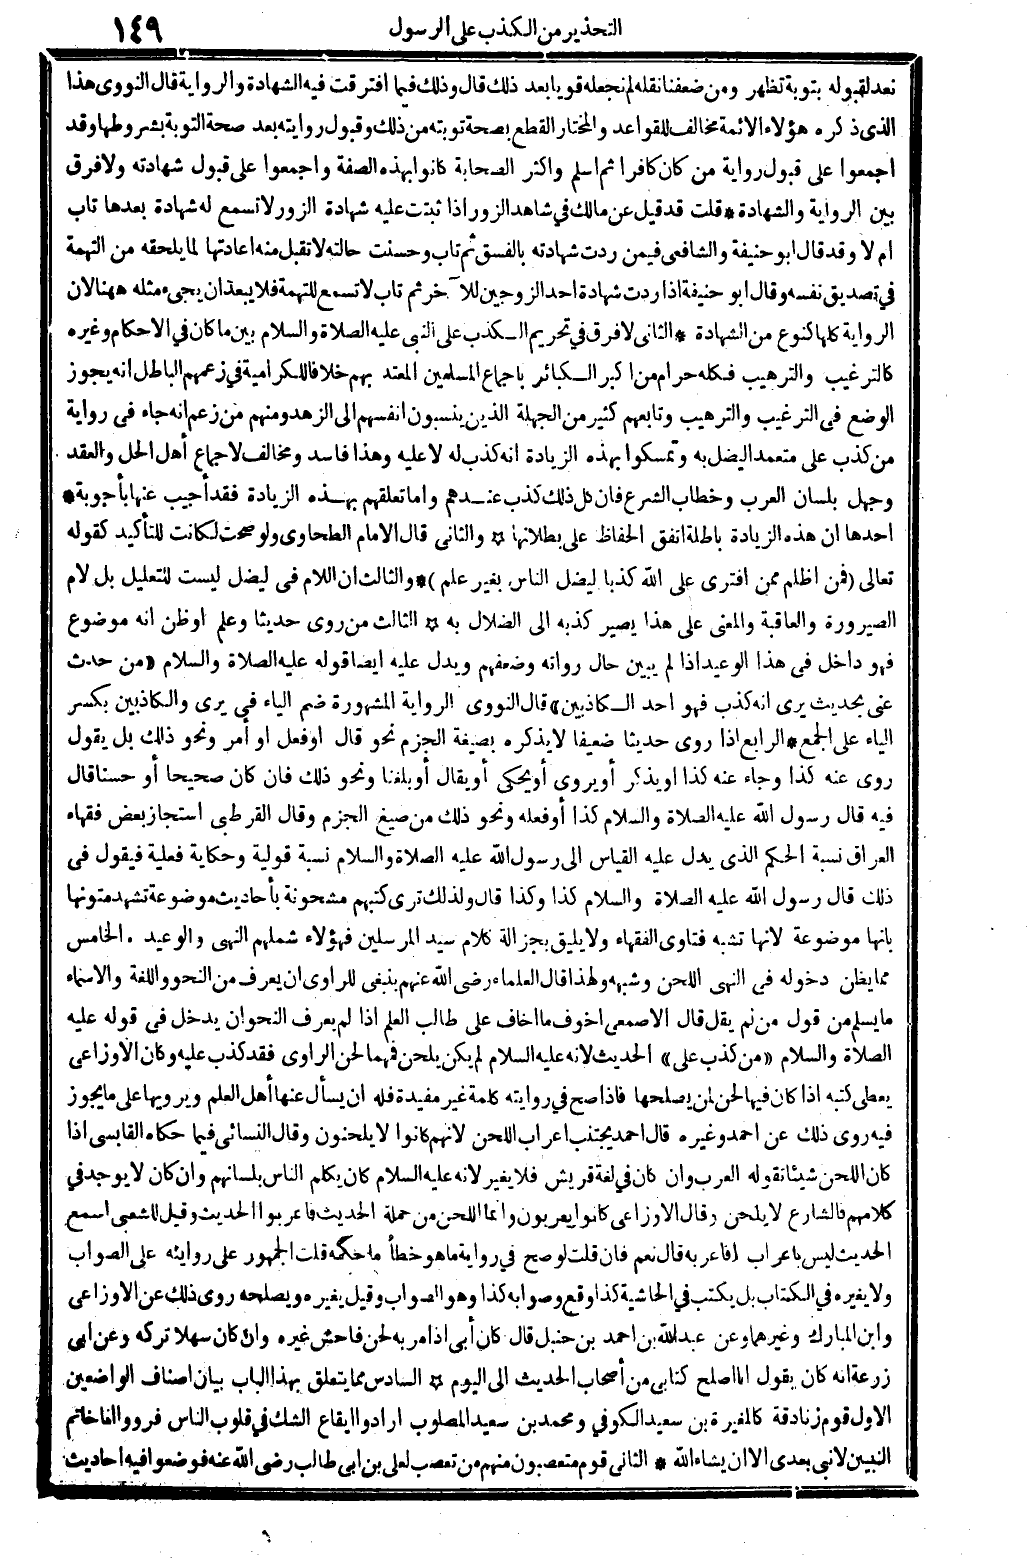 التحذير من الكذب على الرسول
١٤٩
نعد لقبوله بتوبة تظهر ومن ضعفنا نقله لم نجعله قويا بعد ذلك قال وذلك فيما افترقت فيه الشهادة والرواية قال النووى هذا
الذى ذكره هؤلاء الائمة مخالف للقواعد والمختار القطع بصحة توبته من ذلك وقبول روايته بعد صحة التوبة بشروطها وقد
اجمعوا على قبول رواية من كان كافرا ثم اسلم واكثر الصحابة كانوا بهذه الصفة واجمعوا على قبول شهادته ولا فرق
بين الرواية والشهادة * قلت قد قيل عن مالك في شاهد الزور اذا ثبتت عليه شهادة الزور لا تسمع له شهادة بعدها تاب
ام لا وقد قال ابو حنيفة والشافعى فيمن ردت شهادته بالفسق ثم تاب وحسنت حالته لا تقبل منه اعادتها لما يلحقه من التهمة
في تصديق نفسه وقال ابو حنيفة اذا ردت شهادة احد الزوجين للآخر ثم تاب لا تسمع للتهمة فلا يبعد ان يجىء مثله ههنا لان
الرواية كلها كنوع من الشهادة * الثانى لا فرق في تحريم الكذب على النبى عليه الصلاة والسلام بين ما كان في الاحكام وغيره
كالترغيب والترهيب فكله حرام من اكبر الكبائر باجماع المسلمين المعتد بهم خلافا للكرامية في زعمهم الباطل انه يجوز
الوضع فى الترغيب والترهيب وتابعهم كثير من الجهلة الذين ينسبون انفسهم الى الزهد ومنهم من زعم انه جاء فى رواية
من كذب على متعمدا ليضل به وتمسكوا بهذه الزيادة انه كذب له لا عليه وهذا فاسد ومخالف لاجماع أهل الحل والعقد
وجهل بلسان العرب وخطاب الشرع فان كل ذلك كذب عندهم واما تعلقهم بهذه الزيادة فقد أجيب عنها بأجوبة *
احدها ان هذه الزيادة باطلة اتفق الحفاظ على بطلانها ☆ والثانى قال الامام الطحاوى ولو صحت لكانت للتأكيد كقوله
تعالى (فمن اظلم ممن افترى على الله كذبا ليضل الناس بغير علم) * والثالث ان اللام فى ليضل ليست للتعليل بل لام
الصيرورة والعاقبة والمعنى على هذا يصير كذبه الى الضلال به ☆ الثالث من روى حديثا وعلم او ظن انه موضوع
فهو داخل فى هذا الوعيد اذا لم يبين حال رواته وضعفهم ويدل عليه ايضا قوله عليه الصلاة والسلام «من حدث
عنى بحديث يرى انه كذب فهو احد الكاذبين» قال النووى الرواية المشهورة ضم الياء فى يرى والكاذبين بكسر
الياء على الجمع * الرابع اذا روى حديثا ضعيفا لا يذكره بصيغة الجزم نحو قال اوفعل او أمر ونحو ذلك بل يقول
روى عنه كذا وجاء عنه كذا او يذكر أو يروى أو يحكى أو يقال أو بلغنا ونحو ذلك فان كان صحيحا أو حسنا قال
فيه قال رسول الله عليه الصلاة والسلام كذا أو فعله ونحو ذلك من صيغ الجزم وقال القرطبى استجاز بعض فقهاء
العراق نسبة الحكم الذى يدل عليه القياس الى رسول الله عليه الصلاة والسلام نسبة قولية وحكاية فعلية فيقول فى
ذلك قال رسول الله عليه الصلاة والسلام كذا وكذا قال ولذلك ترى كتبهم مشحونة بأحاديث موضوعة تشهد متونها
بانها موضوعة لانها تشبه فتاوى الفقهاء ولا يليق بجزالة كلام سيد المرسلين فهؤلاء شملهم النهى والوعيد . الخامس
مما يظن دخوله فى النهى اللحن وشبهه ولهذا قال العلماء رضى الله عنهم ينبغى للراوى ان يعرف من النحو واللغة والاسماء
ما يسلم من قول من لم يقل قال الاصمعى اخوف ما اخاف على طالب العلم اذا لم يعرف النحو ان يدخل فى قوله عليه
الصلاة والسلام «من كذب على» الحديث لانه عليه السلام لم يكن يلحن فمهما لحن الراوى فقد كذب عليه وكان الاوزاعى
يعطى كتبه اذا كان فيها لحن لمن يصلحها فاذا صح في روايته كلمة غير مفيدة فله ان يسأل عنها أهل العلم ويرويها على ما يجوز
فيه روى ذلك عن احمد وغيره قال احمد يجتنب اعراب اللحن لانهم كانوا لا يلحنون وقال النسائى فيما حكاه القابسى اذا
كان اللحن شيئا تقوله العرب وان كان في لغة قريش فلا يغير لانه عليه السلام كان يكلم الناس بلسانهم وان كان لا يوجد في
كلامهم فالشارع لا يلحن وقال الاوزاعى كانوا يعربون وانما اللحن من حملة الحديث فاعربوا الحديث وقيل للشعبى اسمع
الحديث ليس باعراب افاعربه قال نعم فان قلت لو صح في رواية ما هو خطأ ما حكمه قلت الجمهور على روايته على الصواب
ولا يغيره في الكتاب بل يكتب في الحاشية كذا وقع وصوابه كذا وهو الصواب وقيل يغيره ويصلحه روى ذلك عن الاوزاعى
وابن المبارك وغيرهما وعن عبدالله بن احمد بن حنبل قال كان أبى اذا مر به لحن فاحش غيره وان كان سهلا تركه وعن ابى
زرعة انه كان يقول انا اصلح كتابى من أصحاب الحديث الى اليوم ☆ السادس مما يتعلق بهذا الباب بيان اصناف الواضعين
الاول قوم زنادقة كالمغيرة بن سعيد الكوفي ومحمد بن سعيد المصلوب ارادوا ايقاع الشك في قلوب الناس فرووا انا خاتم
النبيين لا نبى بعدى الا ان يشاء الله * الثانى قوم متعصبون منهم من تعصب لعلى بن ابى طالب رضى الله عنه فوضعوا فيه احاديث